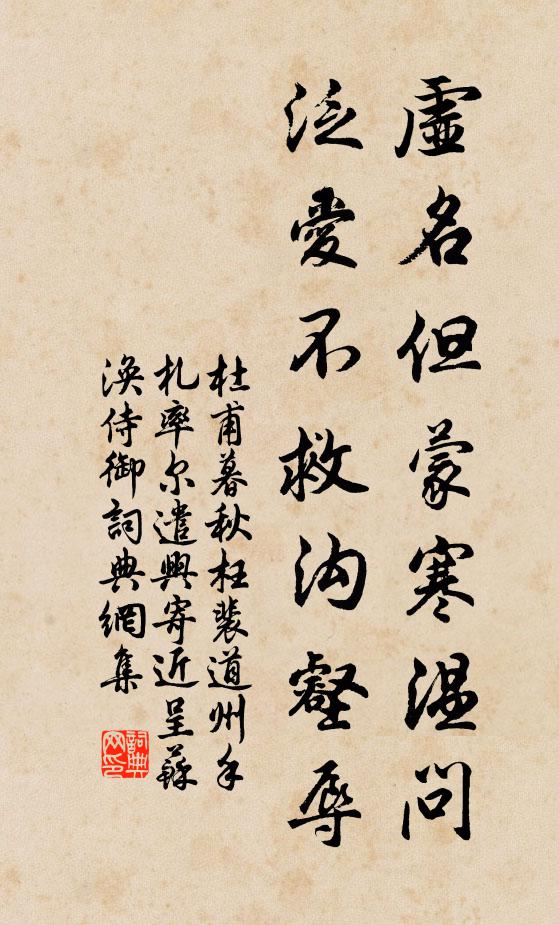 虛名但蒙寒温問
泛愛不救沟壑辱
杜甫暮秋枉裴道州手
札率尔遣興寄近呈蘇
渙侍御詞典網集
詞典
网印